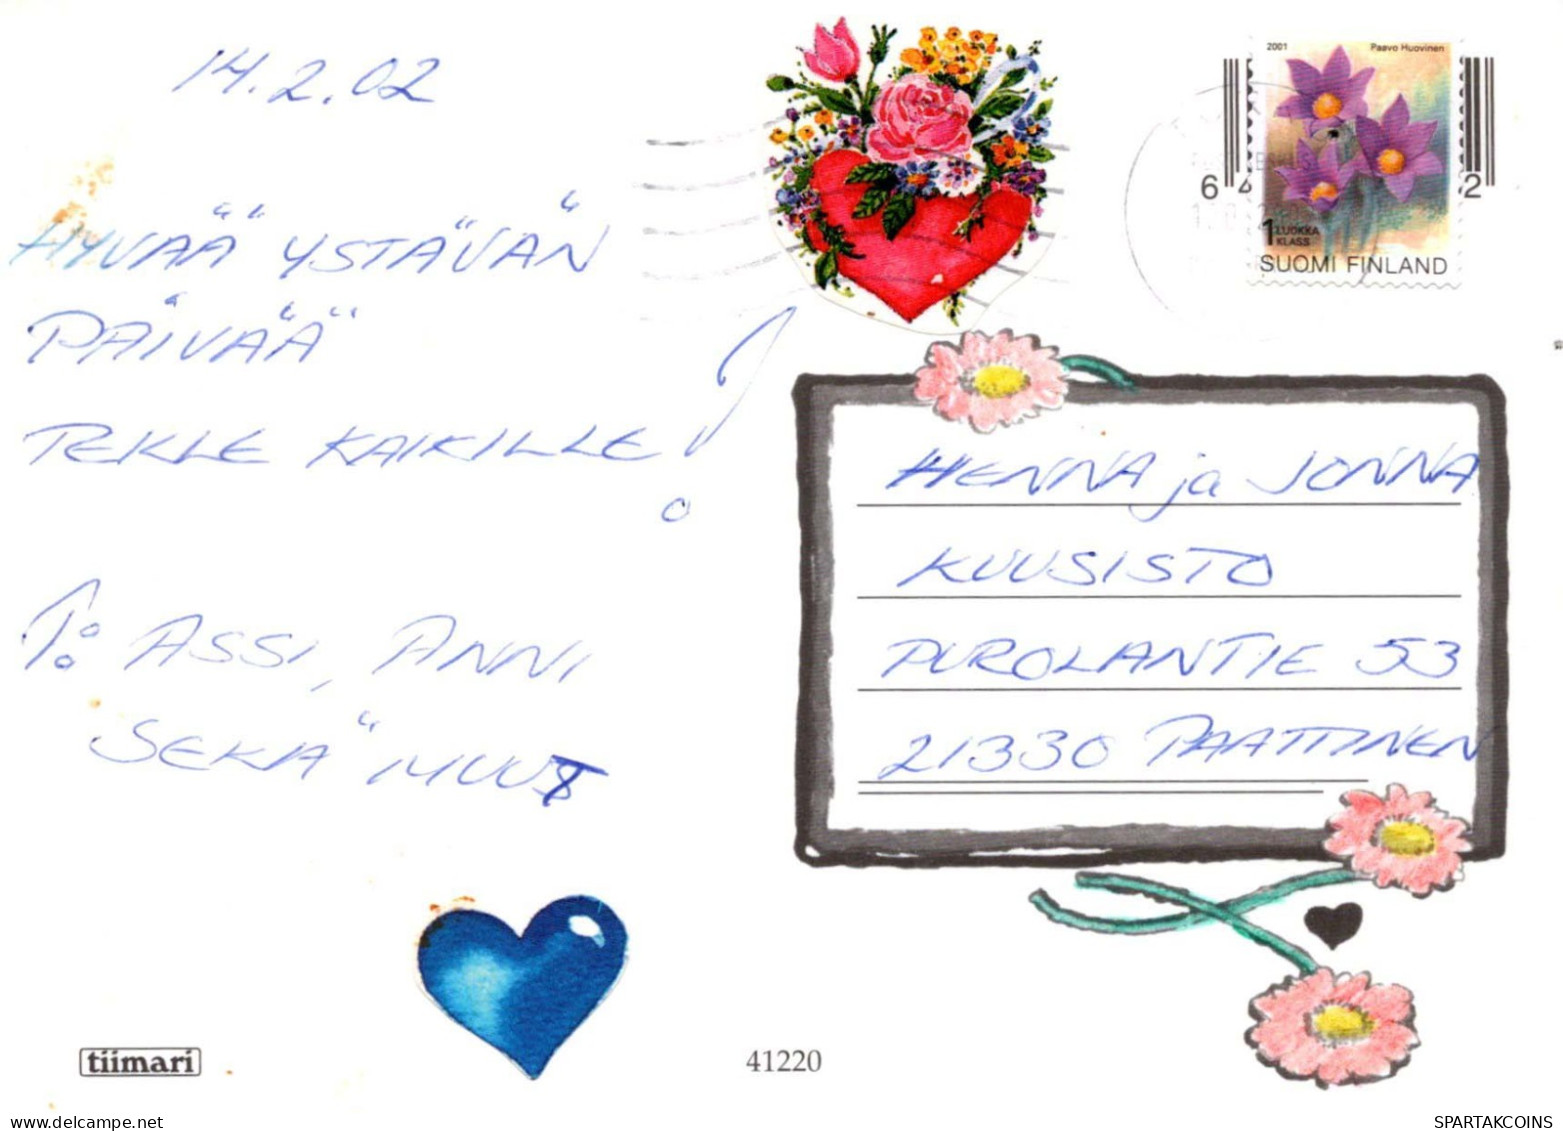 14.2.02
HYVÄÄ YSTÄVÄN
PÄIVÄÄ
TEILLE KAIKILLE!
T: ASSI, ANNI
SEKÄ MUUT
2001 Paavo Huovinen
6 4 2
1 LUOKKA
KLASS
SUOMI FINLAND
HENNA ja JONNA
KUUSISTO
PUROLANTIE 53
21330 PAATTINEN
tiimari
41220
SPARTAKCOINS